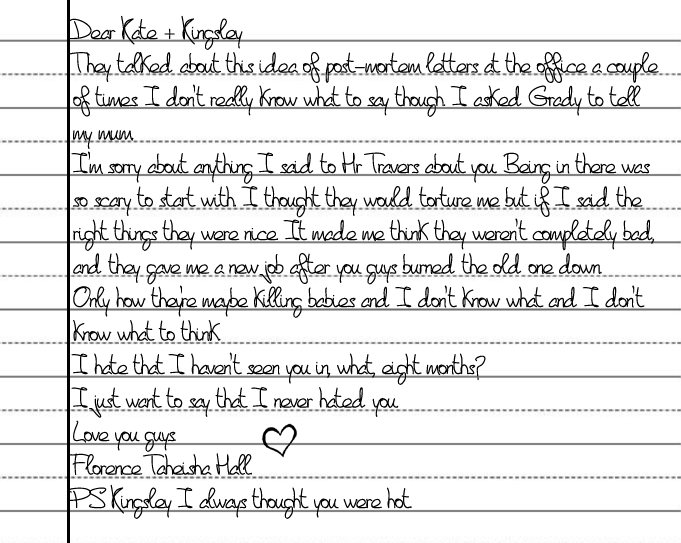 Dear Kate + Kingsley
They talked about this idea of post-mortem letters at the office a couple
of times I don't really know what to say though I asked Grady to tell
my mum.
I'm sorry about anything I said to Mr Travers about you Being in there was
so scary to start with I thought they would torture me but if I said the
right things they were nice It made me think they weren't completely bad,
and they gave me a new job after you guys burned the old one down
Only how they're maybe killing babies and I don't know what and I don't
know what to think
I hate that I haven't seen you in, what, eight months?
I just want to say that I never hated you
Love you guys ♡
Florence Taheisha Hall
PS Kingsley I always thought you were hot